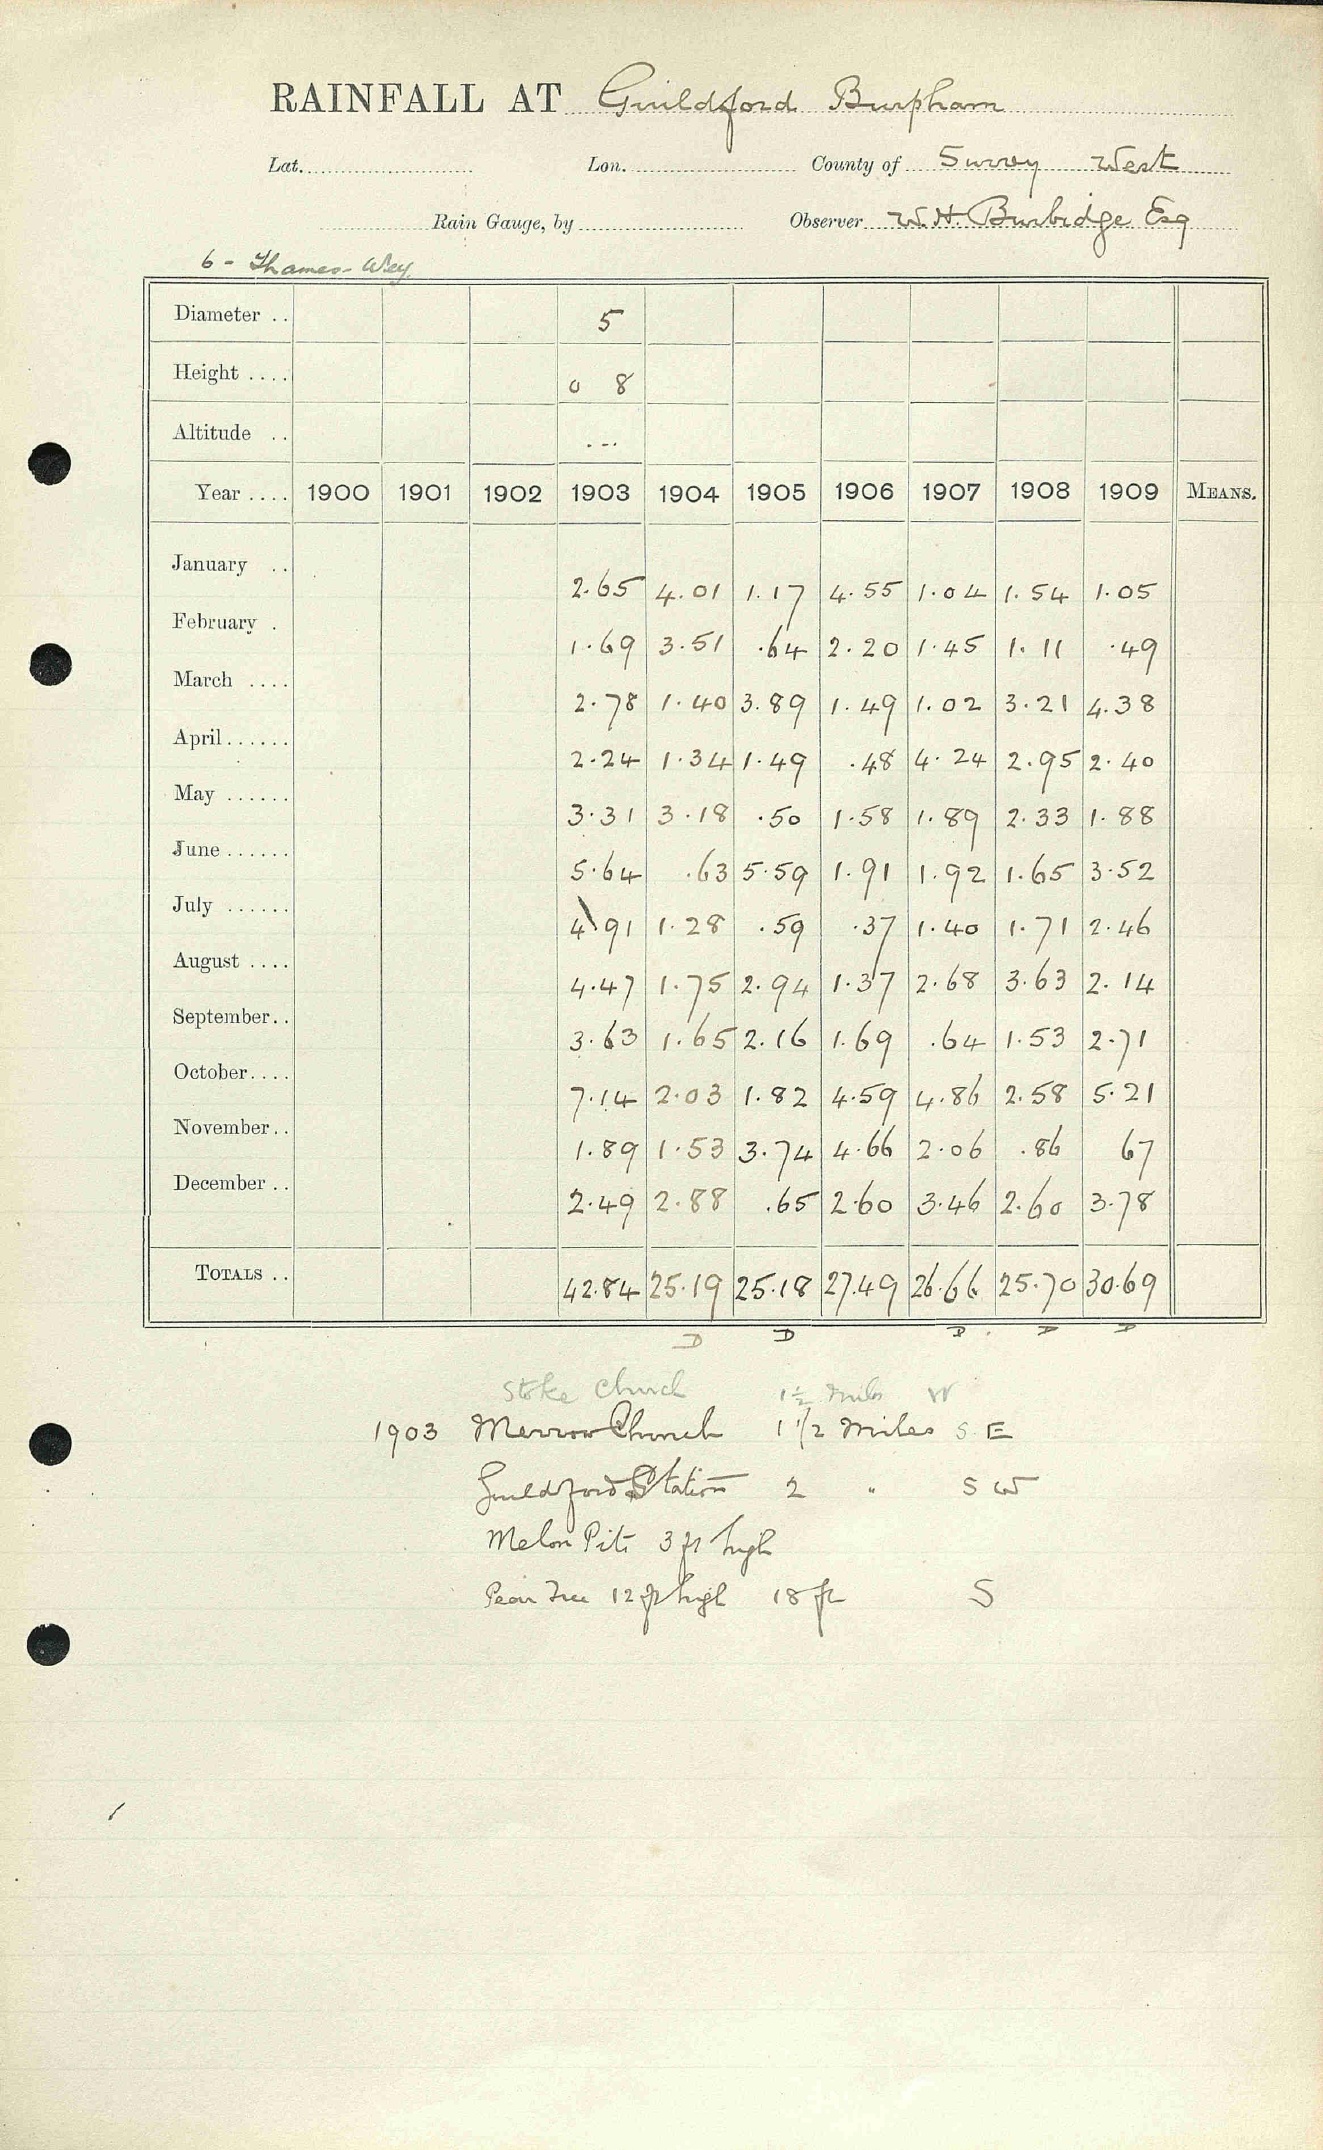 RAINFALL AT Guildford Burpham
Lat. Lon. County of Surrey West
Rain Gauge, by Observer W. H. Burbidge Esq
6 - Thames - Wey
Diameter .. 5
Height .... 0 8
Altitude .. ...
Year .... 1900 1901 1902 1903 1904 1905 1906 1907 1908 1909 MEANS.
January .. 2.65 4.01 1.17 4.55 1.04 1.54 1.05
February . 1.69 3.51 .64 2.20 1.45 1.11 .49
March .... 2.78 1.40 3.89 1.49 1.02 3.21 4.38
April...... 2.24 1.34 1.49 .48 4.24 2.95 2.40
May ...... 3.31 3.18 .50 1.58 1.89 2.33 1.88
June ...... 5.64 .63 5.59 1.91 1.92 1.65 3.52
July ...... 4 91 1.28 .59 .37 1.40 1.71 2.46
August .... 4.47 1.75 2.94 1.37 2.68 3.63 2.14
September.. 3.63 1.65 2.16 1.69 .64 1.53 2.71
October.... 7.14 2.03 1.82 4.59 4.86 2.58 5.21
November.. 1.89 1.53 3.74 4.66 2.06 .86 67
December .. 2.49 2.88 .65 2.60 3.46 2.60 3.78
TOTALS .. 42.84 25.19 25.18 27.49 26.66 25.70 30.69
D D D D D
Stoke Church 1½ Miles W
1903 Merrow Church 1 1/2 Miles S E
Guildford Station 2 " S W
Melon Pits 3 ft high
Pear Tree 12 ft high 18 ft S